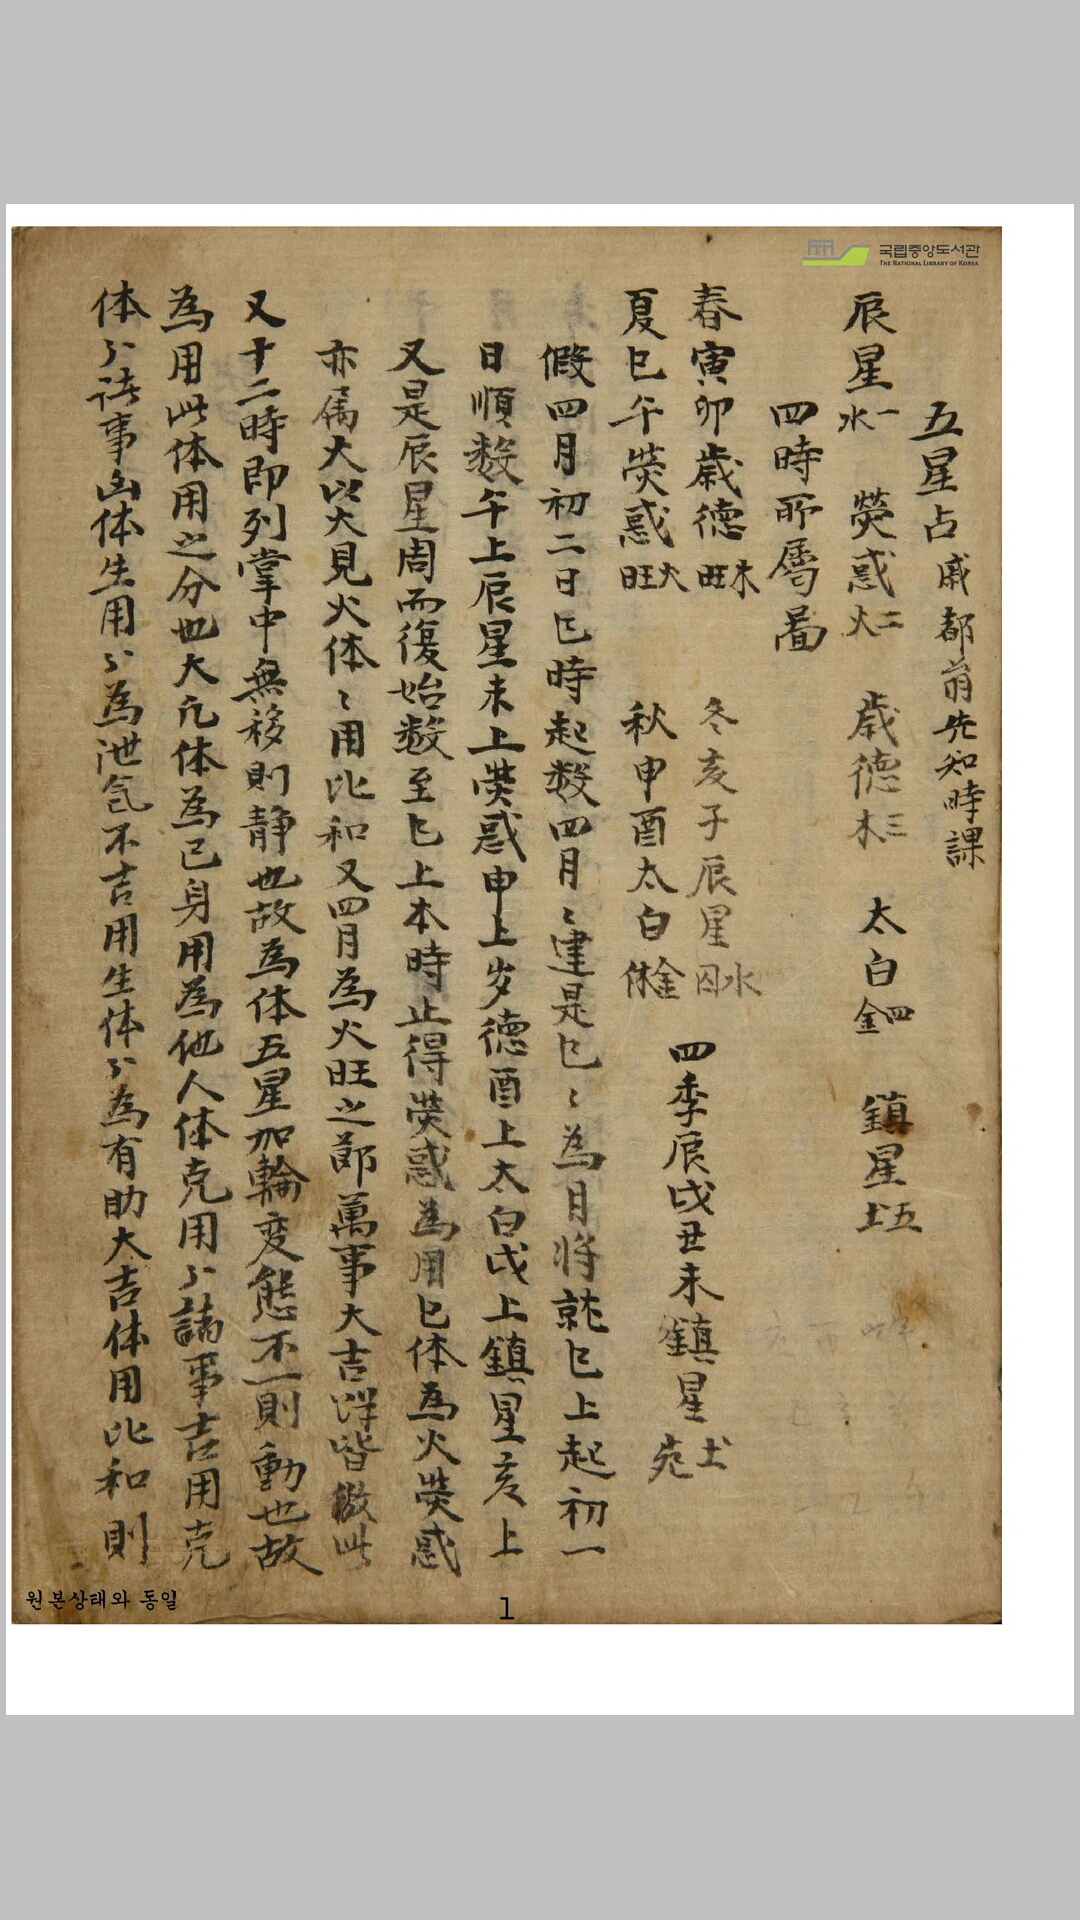 국립중앙도서관
THE NATIONAL LIBRARY OF KOREA
五星占戚都前先知時課
辰星水一 熒惑火二 歲德木三 太白金四 鎮星土五
四時所屬啚
春寅卯歲德木旺 冬亥子辰星水囚
夏巳午熒惑火旺 秋申酉太白金休 四季辰戌丑未鎮星土死
假四月初二日巳時起数四月〻建是巳〻為月將就巳上起初一
日順数午上辰星未上熒惑申上岁德酉上太白戌上鎮星亥上
又是辰星周而復始数至巳上本時止得熒惑為用巳体為火熒惑
亦属火以火見火体〻用比和又四月為火旺之節萬事大吉詳皆倣此
又十二時即列掌中無移則静也故為体五星加輪变態不一則動也故
為用此体用之分也大凢体為己身用為他人体克用〻諸事吉用克
体〻諸事凶体生用〻為泄气不吉用生体〻為有助大吉体用比和則
원본상태와 동일
1